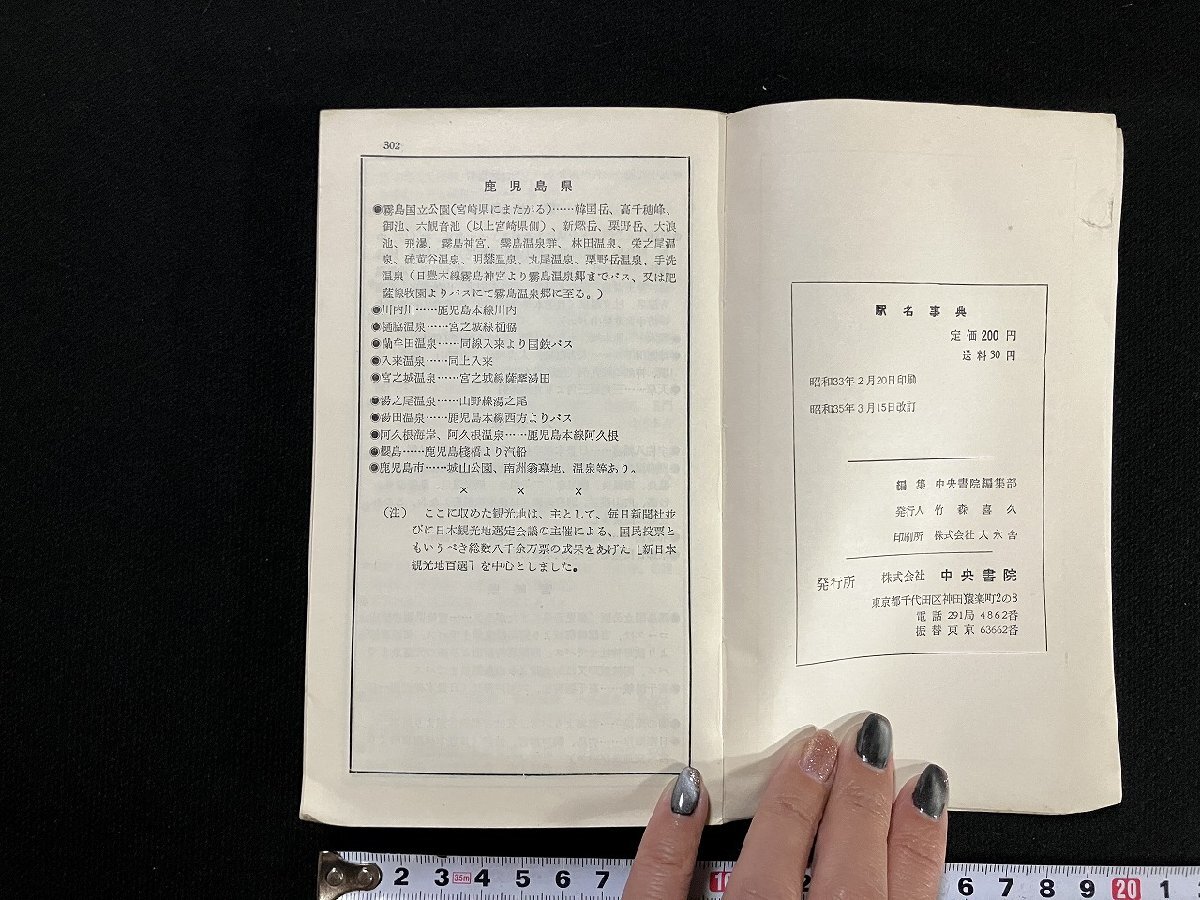 302
鹿児島県
◉霧島国立公園(宮崎県にまたがる)……韓国岳、高千穂峰、
御池、六観音池(以上宮崎県側)、新燃岳、栗野岳、大浪
池、霧島神宮、霧島温泉群、林田温泉、栄之尾温
泉、硫黄谷温泉、明礬温泉、丸尾温泉、栗野岳温泉、手洗
温泉(日豊本線霧島神宮より霧島温泉郷までバス、又は肥
薩線牧園よりバスにて霧島温泉郷に至る。)
◉川内川……鹿児島本線川内
◉樋脇温泉……宮之城線樋脇
◉藺牟田温泉……同線入来より国鉄バス
◉入来温泉……同上入来
◉宮之城温泉……宮之城線薩摩湯田
◉湯之尾温泉……山野線湯之尾
◉湯田温泉……鹿児島本線西方よりバス
◉阿久根海岸、阿久根温泉……鹿児島本線阿久根
◉桜島……鹿児島棧橋より汽船
◉鹿児島市……城山公園、南州翁墓地、温泉等あり。
× × ×
(注) ここに収めた観光地は、主として、毎日新聞社並
びに日本観光地選定会議の主催による、国民投票と
もいうべき総数八千余万票の成果をあげた「新日本
観光地百選」を中心としました。
駅名事典
定価200円
送料30円
昭和33年2月20日印刷
昭和35年3月15日改訂
編集 中央書院編集部
発行人 竹森喜久
印刷所 株式会社
発行所 株式会社 中央書院
東京都千代田区神田猿楽町2の8
電話 291局 4862番
振替東京 63662番
2 3 3.5m 4 5 6 7 10
6 7 8 9 20 1